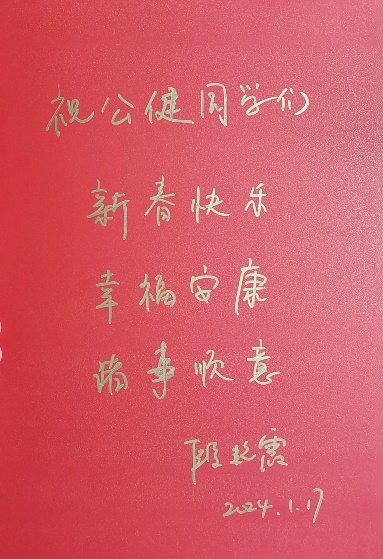 祝公健同学们
新春快乐
幸福安康
诸事顺意
2024.1.17